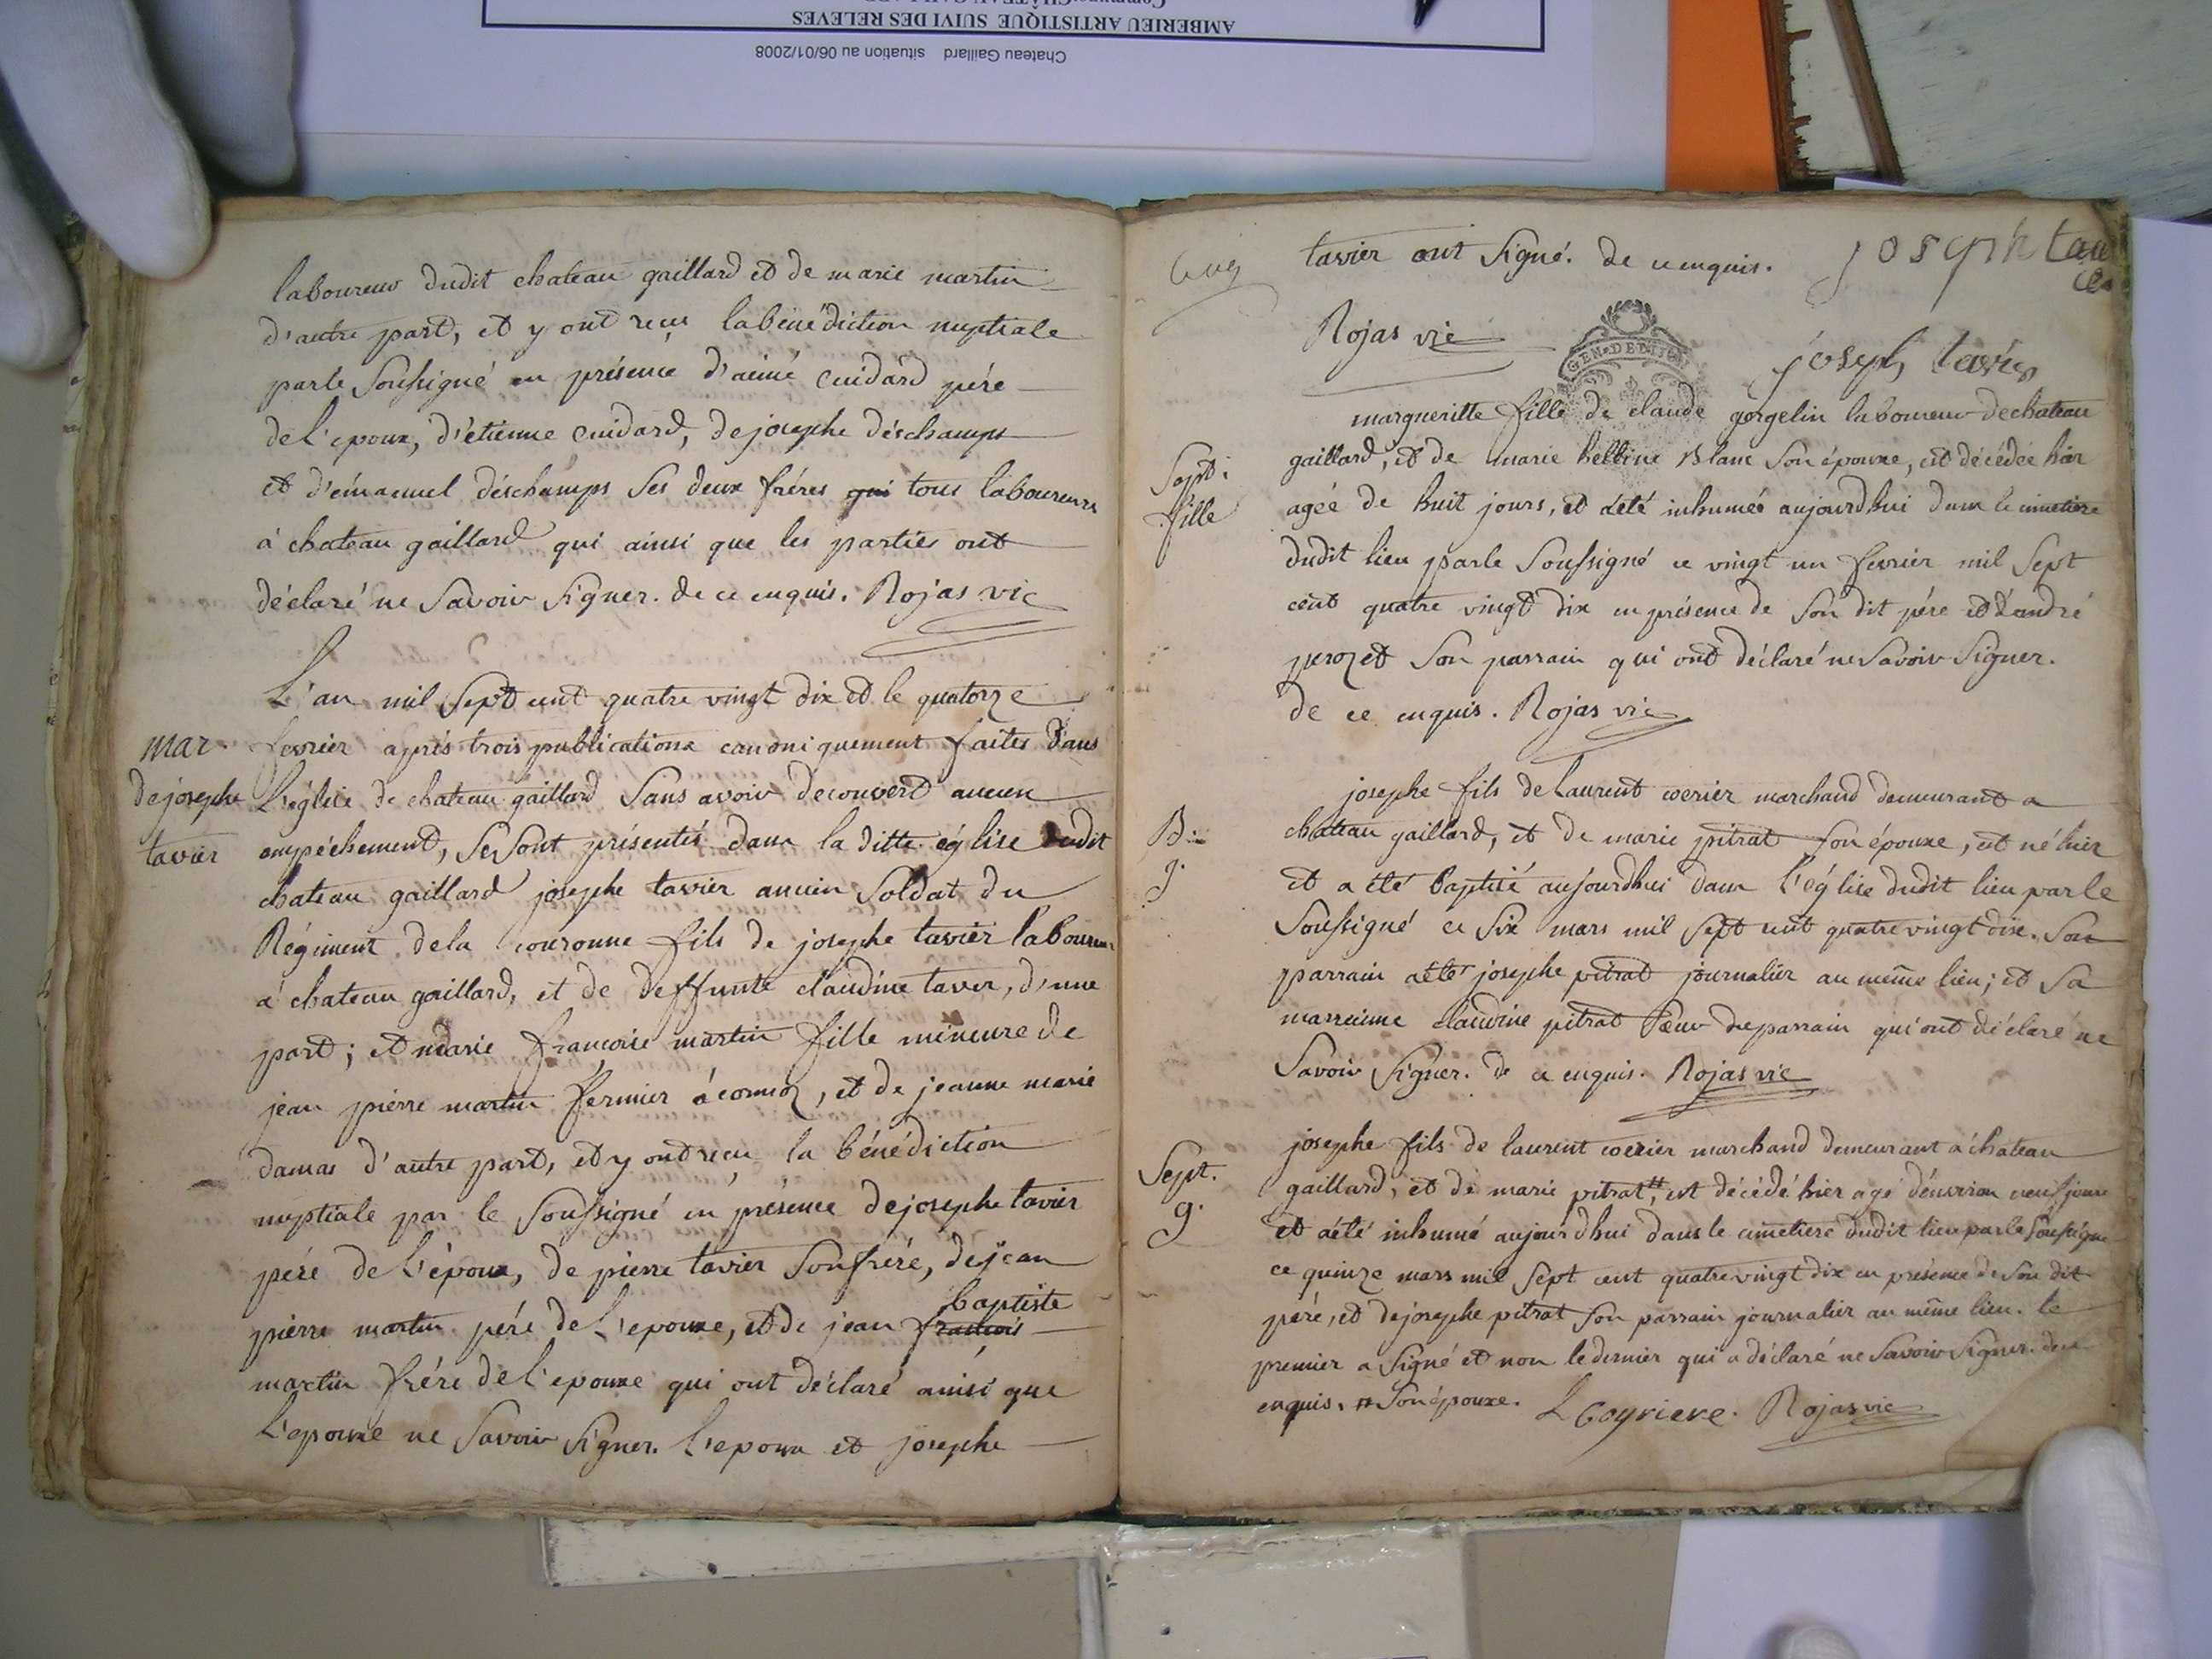 Chateau Gaillard situation au 06/01/2008
AMBERIEU ARTISTIQUE SUIVI DES RELEVES
laboureur dudit chateau gaillard et de marie martin
d'autre part, et y ont reçu la bénédiction nuptiale
par le Soussigné en présence d'aimé Cuidard pére
de l'epoux, d'étienne Cuidard, de josephe déschamps
et d'émanuel déschamps Ses deux fréres qui tous laboureurs
à chateau gaillard qui ainsi que les parties ont
déclaré ne Savoir Signer. de ce enquis. Rojas vic
L'an mil Sept cent quatre vingt dix et le quatorze
mar
fevrier aprés trois publications canoniquement faites dans
de josephe
L'église de chateau gaillard Sans avoir decouvert aucun
tavier
empéchement, Se Sont présentés dans la ditte église dudit
chateau gaillard josephe tavier ancien Soldat du
Régiment de la couronne fils de josephe tavier laboureur
à chateau gaillard, et de deffunte claudine taver, d'une
part; et marie françoise martin fille mineure de
jean pierre martin fermier à cormoz, et de jeanne marie
damas d'autre part, et y ont reçu la bénédiction
nuptiale par le Soussigné en présence de josephe tavier
pére de l'époux, de pierre tavier Son frére, de jean
baptiste
pierre martin pére de l'epouxe, et de jean françois
martin frére de l'epouxe qui ont déclaré ainsi que
L'epouxe ne Savoir Signer. L'epoux et josephe
tavier ont Signé. de ce enquis.
Rojas vic
GEN. DE
joseph tavier
margueritte fille de claude gorgelin laboureur de chateau
Sept:
gaillard, et de marie Blanc Son épouxe, est décédée hier
fille
agée de huit jours, et a été inhumée aujourdhui dans le cimetiere
dudit lieu par le Soussigné ce vingt un fevrier mil Sept
cent quatre vingt dix en présence de Son dit pére et d'andré
perozet Son parrain qui ont déclaré ne Savoir Signer.
de ce enquis. Rojas vic
josephe fils de Laurent coerier marchand demeurant a
B.
chateau gaillard, et de marie pitrat Son épouxe, est né hier
g.
et a été baptisé aujourdhui dans l'église dudit lieu par le
Soussigné ce Six mars mil Sept cent quatre vingt dix. Son
parrain a été josephe pitrat journalier au même lieu; et Sa
marreinne claudine pitrat Sœur du parrain qui ont déclaré ne
Savoir Signer. de ce enquis. Rojas vic
josephe fils de laurent coerier marchand demeurant à chateau
Sept.
gaillard, et de marie pitrat #, est décédé hier agé d'environ neuf jours
g.
et a été inhumé aujourdhui dans le cimetiere dudit lieu par le Soussigné
ce quinze mars mil Sept cent quatre vingt dix en présence de Son dit
pére, et de josephe pitrat Son parrain journalier au même lieu. le
premier a Signé et non le dernier qui a déclaré ne Savoir Signer. de ce
enquis. # Son épouxe. L Coyriere. Rojas vic